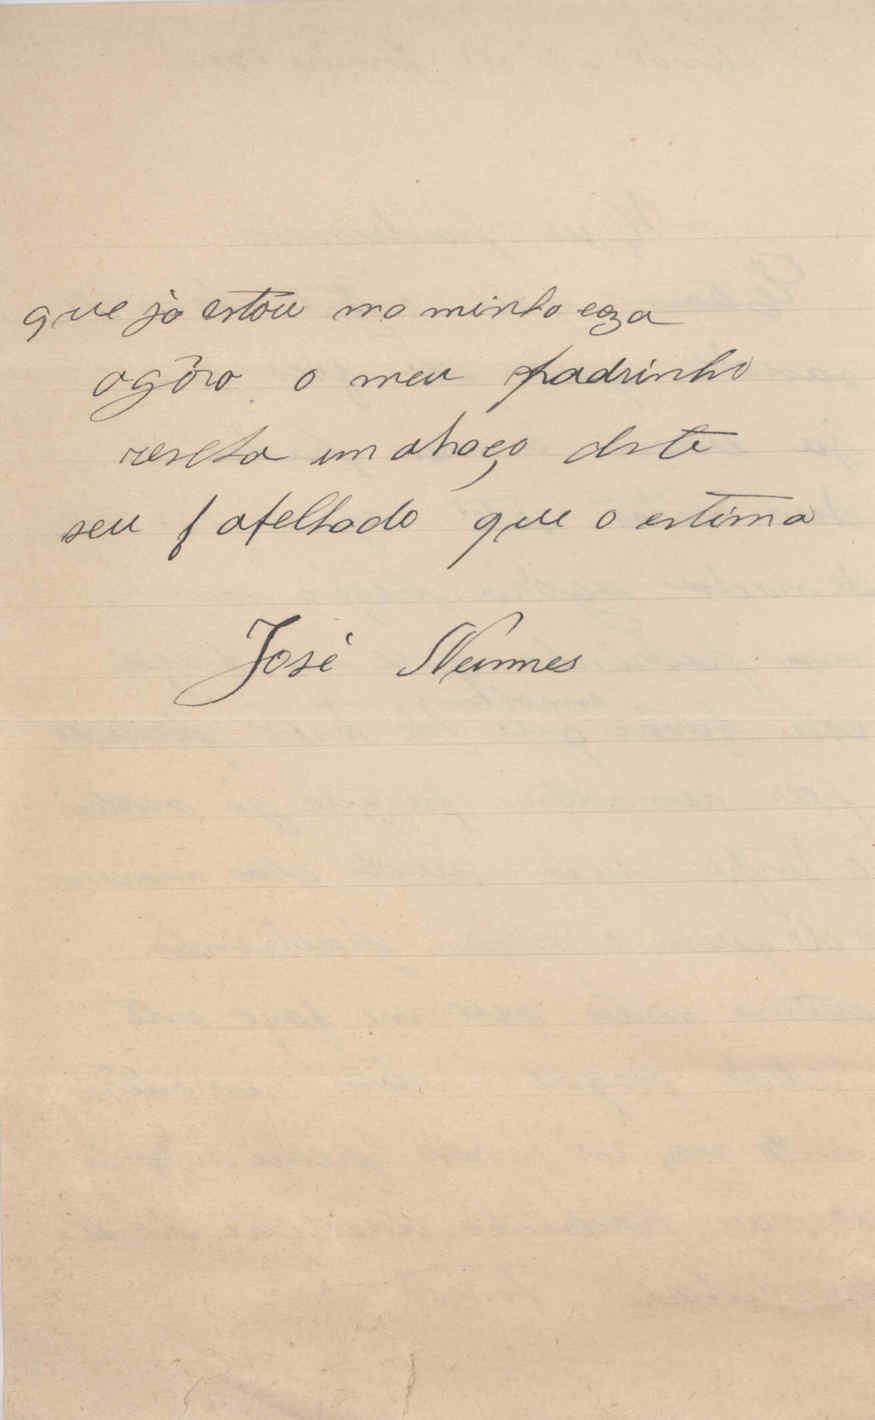 que ja estou na minha caza
agóra o meu padrinho
reseba um abaço deste
seu f afelhado que o estima
José Nunnes